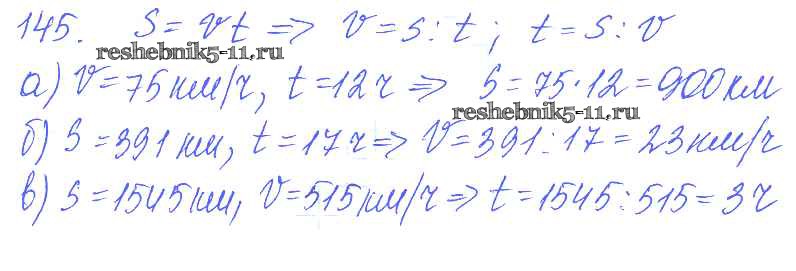 145. S = vt => v = s : t ; t = s : v
reshebnik5-11.ru
а) v = 75 км/ч, t = 12 ч => S = 75 · 12 = 900 км
reshebnik5-11.ru
б) S = 391 км, t = 17 ч => v = 391 : 17 = 23 км/ч
в) S = 1545 км, v = 515 км/ч => t = 1545 : 515 = 3 ч